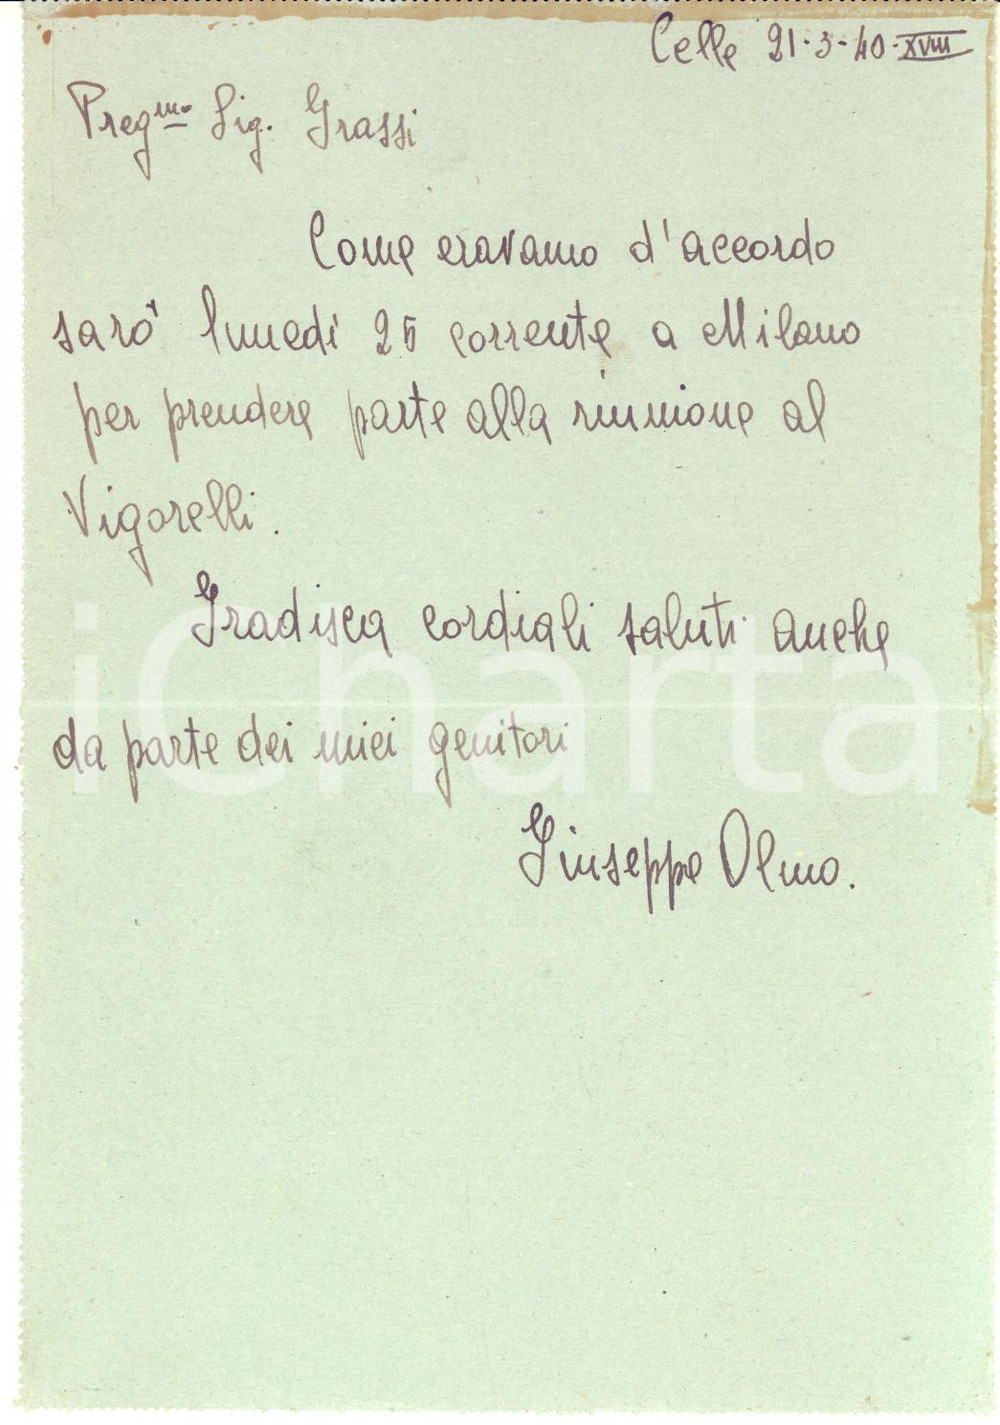 Celle 21-3-40-XVIII
Preg.mo Sig. Grassi
Come eravamo d'accordo
sarò lunedì 25 corrente a Milano
per prendere parte alla riunione al
Vigorelli.
Gradisca cordiali saluti anche
da parte dei miei genitori
Giuseppe Olmo.
iCharta